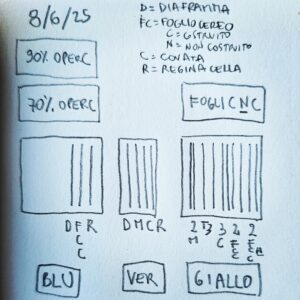 8/6/25
D= DIAFRAMMA
FC= FOGLIO CEREO
C= COSTRUITO
N= NON COSTRUITO
C= COVATA
R= REGINA CELLA
90% OPERC
70% OPERC
FOGLI C N C
D F R
C
C
D M C R
2 3 2 2
M C
BLU
VER
GIALLO